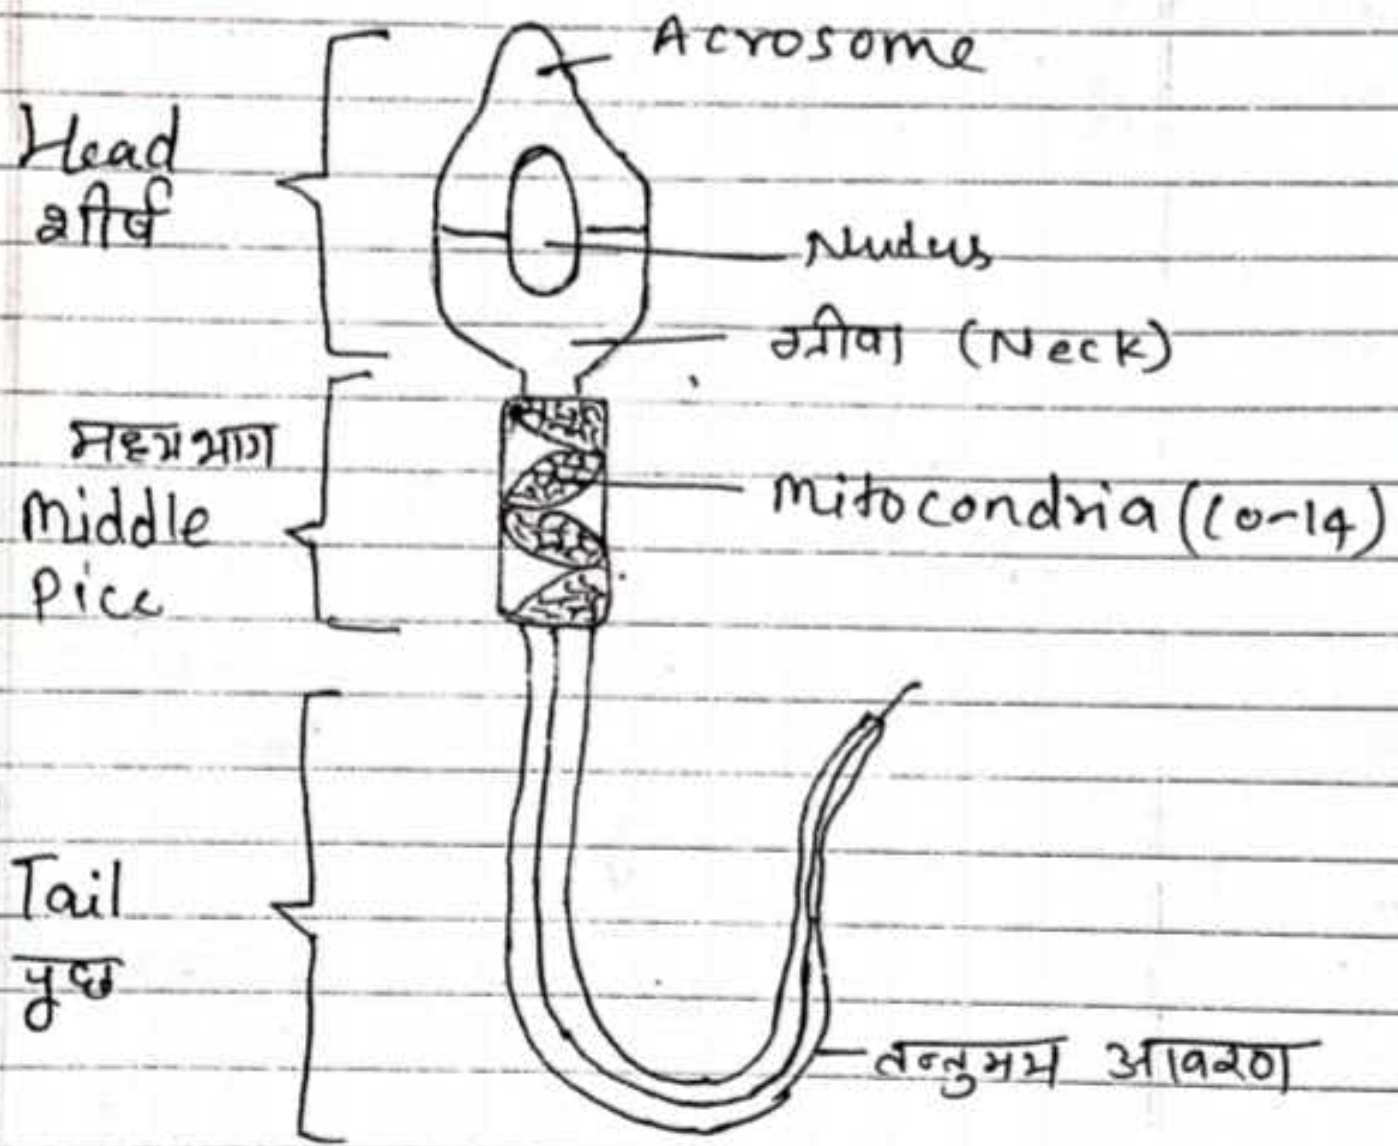 Acrosome
Head
शीर्ष
Nucleus
ग्रीवा (Neck)
मध्यभाग
Middle
Pice
Mitocondria (10-14)
Tail
पुछ
तन्तुमय आवरण